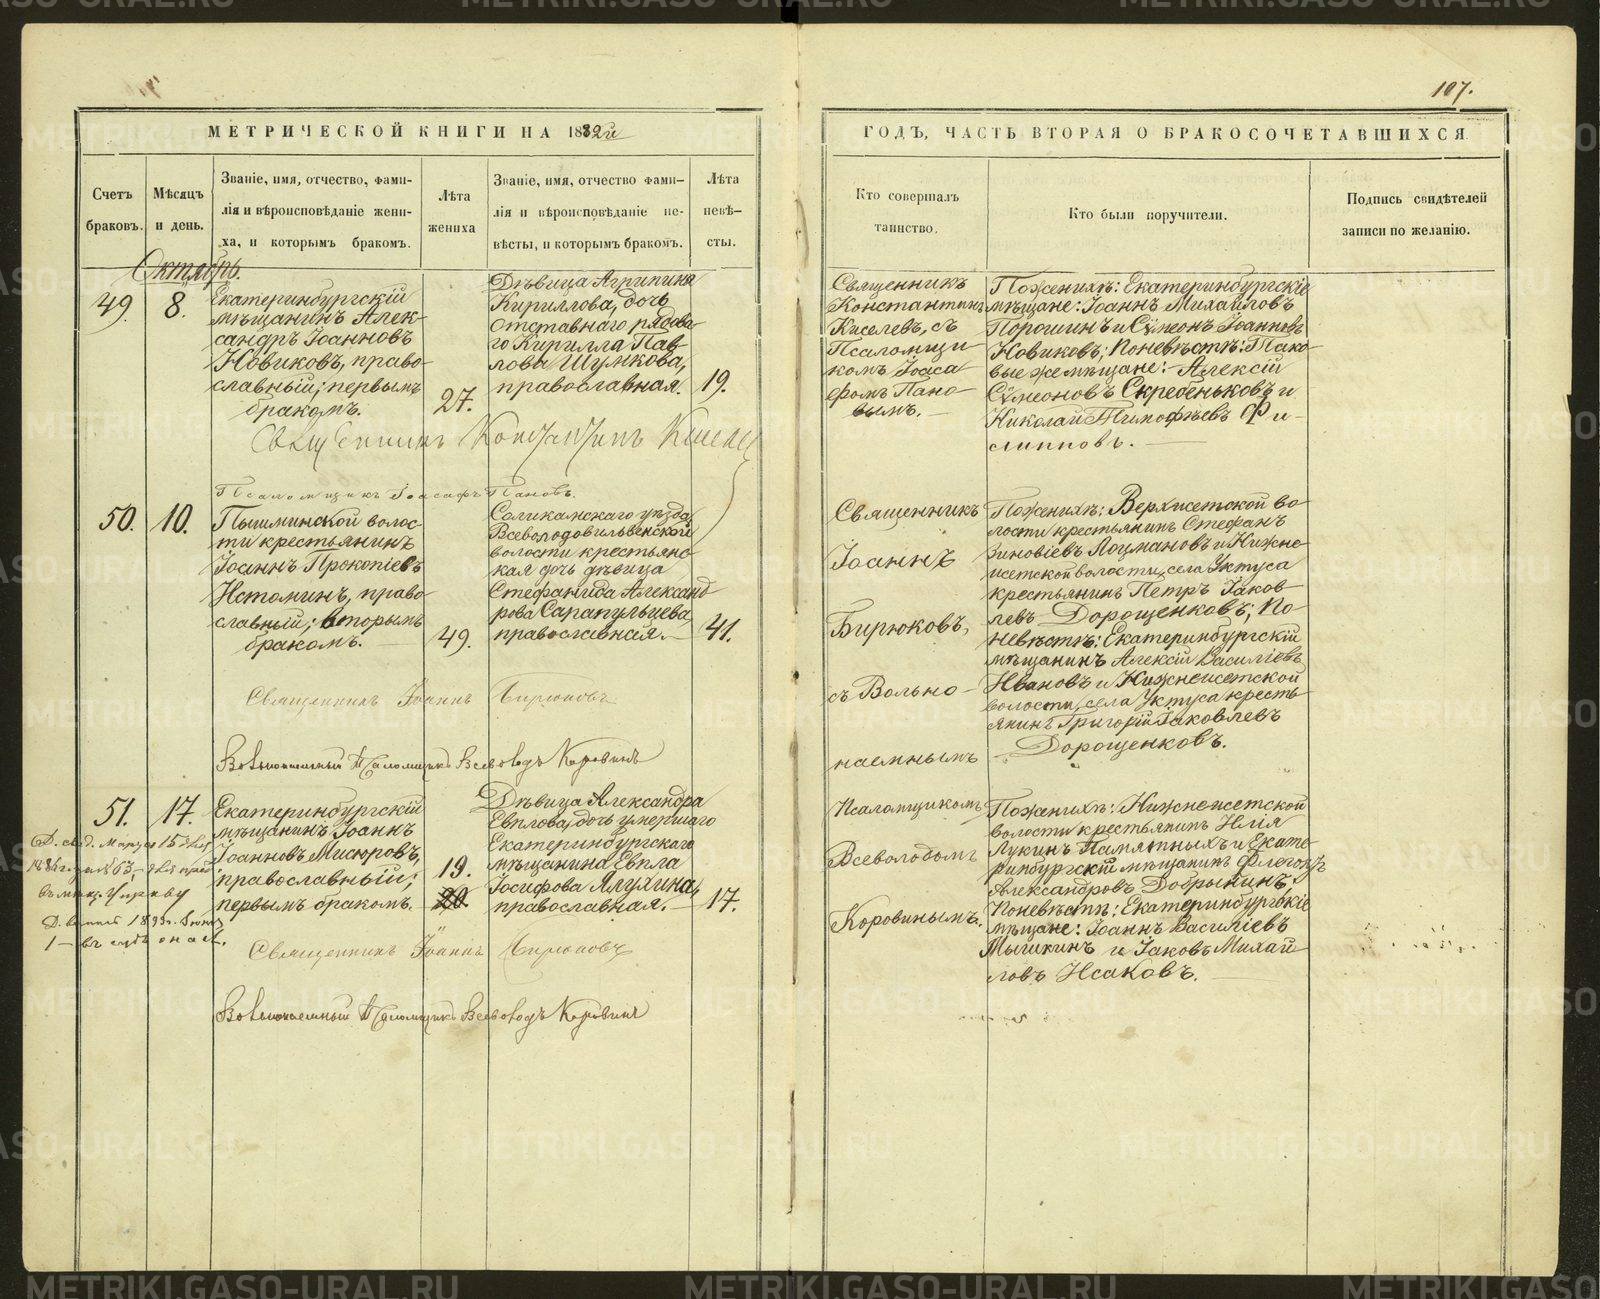 107.
МЕТРИЧЕСКОЙ КНИГИ НА 1882й
ГОДЪ, ЧАСТЬ ВТОРАЯ О БРАКОСОЧЕТАВШИХСЯ.
Счетъ
браковъ.
Мѣсяцъ
и день.
Званіе, имя, отчество, фами-
лія и вѣроисповѣданіе жени-
ха, и которымъ бракомъ.
Лѣта
жениха
Званіе, имя, отчество фами-
лія и вѣроисповѣданіе не-
вѣсты, и которымъ бракомъ.
Лѣта
невѣ-
сты.
Кто совершалъ
таинство.
Кто были поручители.
Подпись свидѣтелей
записи по желанію.
Октябрь.
49.
8.
Екатеринбургскій
мѣщанинъ Алек-
сандръ Іоанновъ
Новиковъ, право-
славный; первымъ
бракомъ.
27.
Дѣвица Агрипина
Кириллова, дочь
отставнаго рядова-
го Кирилла Пав-
лова Шумкова,
православная.
19.
Священникъ
Константинъ
Киселевъ, съ
Псаломщи-
комъ Іоаса-
фомъ Пано-
вымъ.
Поженихѣ: Екатеринбургскіе
мѣщане: Іоаннъ Михайловъ
Порошинъ и Сѵмеонъ Іоанновъ
Новиковъ; поневѣстѣ: Тако-
вые же мѣщане: Алексій
Сѵмеоновъ Скребеньковъ и
Николай Тимофѣевъ Фи-
липповъ.
Священникъ Константинъ Киселев
Псаломщикъ Іоасафъ Пановъ.
50.
10.
Пышминской волос-
ти крестьянинъ
Іоаннъ Прокопіевъ
Истоминъ, право-
славный; вторымъ
бракомъ.
49.
Соликамскаго уѣзда
Всеволодовильвенской
волости крестьянс-
кая дочь дѣвица
Стефанида Александ-
рова Сарапульцева
православная.
41.
Священникъ
Іоаннъ
Бирюковъ,
съ Вольно-
наемнымъ
Поженихѣ: Верхисетской во-
лости крестьянинъ Стефанъ
Зиновіевъ Лоцмановъ и Нижне-
исетской волости, села Уктуса
крестьянинъ Петръ Іаков-
левъ Дорощенковъ; По-
невѣстѣ: Екатеринбургскій
мѣщанинъ Алексій Василіевъ
Ивановъ и Нижнеисетской
волости, села Уктуса кресть-
янинъ Григорій Іаковлевъ
Дорощенковъ.
Священникъ Іоаннъ Бирюковъ
Вольнонаемный Псаломщикъ Всеволодъ Коровинъ
51.
17.
Екатеринбургскій
мѣщанинъ Іоаннъ
Іоанновъ Мисюровъ,
православный;
первымъ бракомъ.
19.
20.
Дѣвица Александра
Евплова, дочь умершаго
Екатеринбургскаго
мѣщанина Евпла
Іосифова Ялухина,
православная.
17.
Псаломщикомъ
Всеволодомъ
Коровинымъ.
Поженихѣ: Нижнеисетской
волости крестьянинъ Илія
Лукинъ Памятныхъ и Екате-
ринбургскій мѣщанинъ Флегонтъ
Александровъ Добрынинъ;
Поневѣстѣ: Екатеринбургскіе
мѣщане: Іоаннъ Василіевъ
Мышкинъ и Іаковъ Михай-
ловъ Исаковъ.
Священникъ Іоаннъ Бирюковъ
Вольнонаемный Псаломщикъ Всеволодъ Коровинъ
METRIKI.GASO-URAL.RU